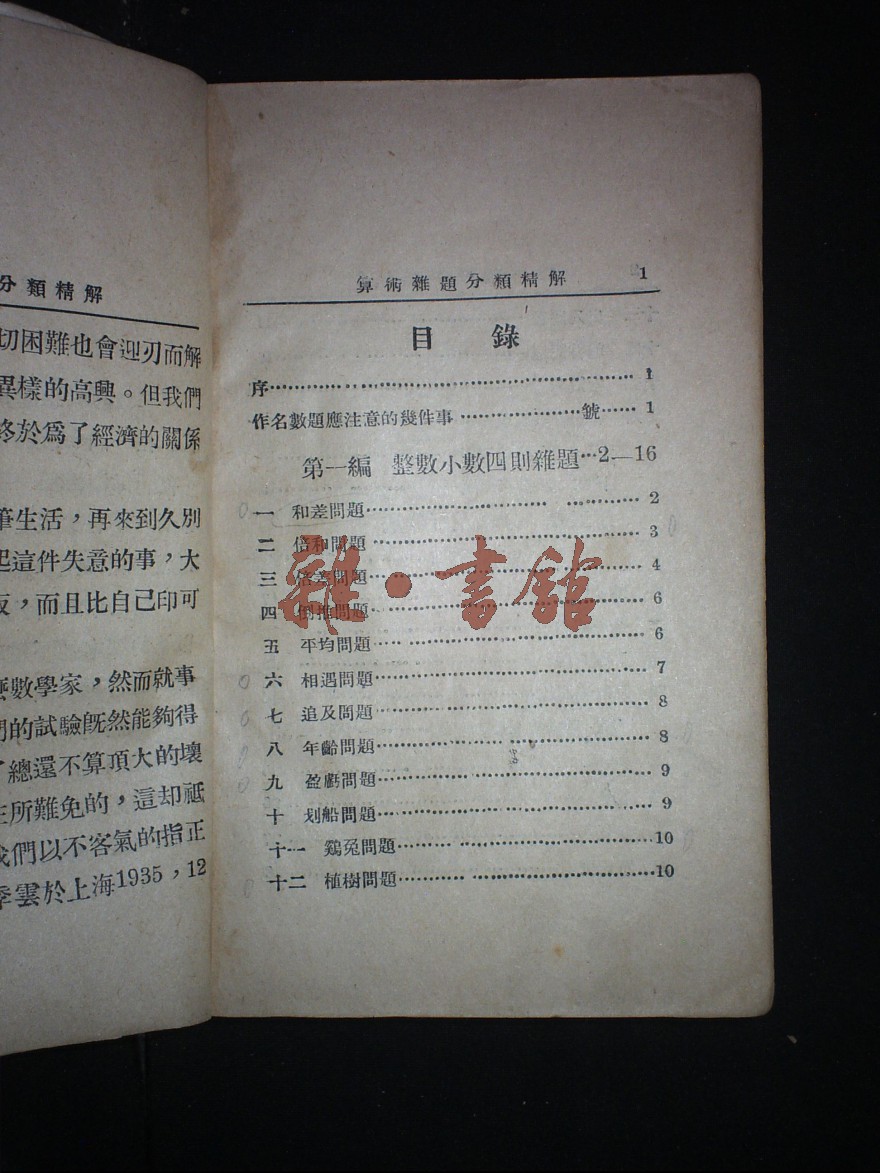 分類精解
切困難也會迎刃而解
異樣的高興。但我們
終於爲了經濟的關係
筆生活，再來到久別
起這件失意的事，大
版，而且比自己印可
麼數學家，然而就事
們的試驗旣然能夠得
了總還不算頂大的壞
在所難免的，這却祗
我們以不客氣的指正
季雲於上海1935，12
算術雜題分類精解 1
目 錄
序 1
作名數題應注意的幾件事 號 1
第一編 整數小數四則雜題 2—16
一 和差問題 2
二 倍和問題 3
三 倍差問題 4
四 倒推問題 6
五 平均問題 6
六 相遇問題 7
七 追及問題 8
八 年齡問題 8
九 盈虧問題 9
十 划船問題 9
十一 鷄兔問題 10
十二 植樹問題 10
雜·書館